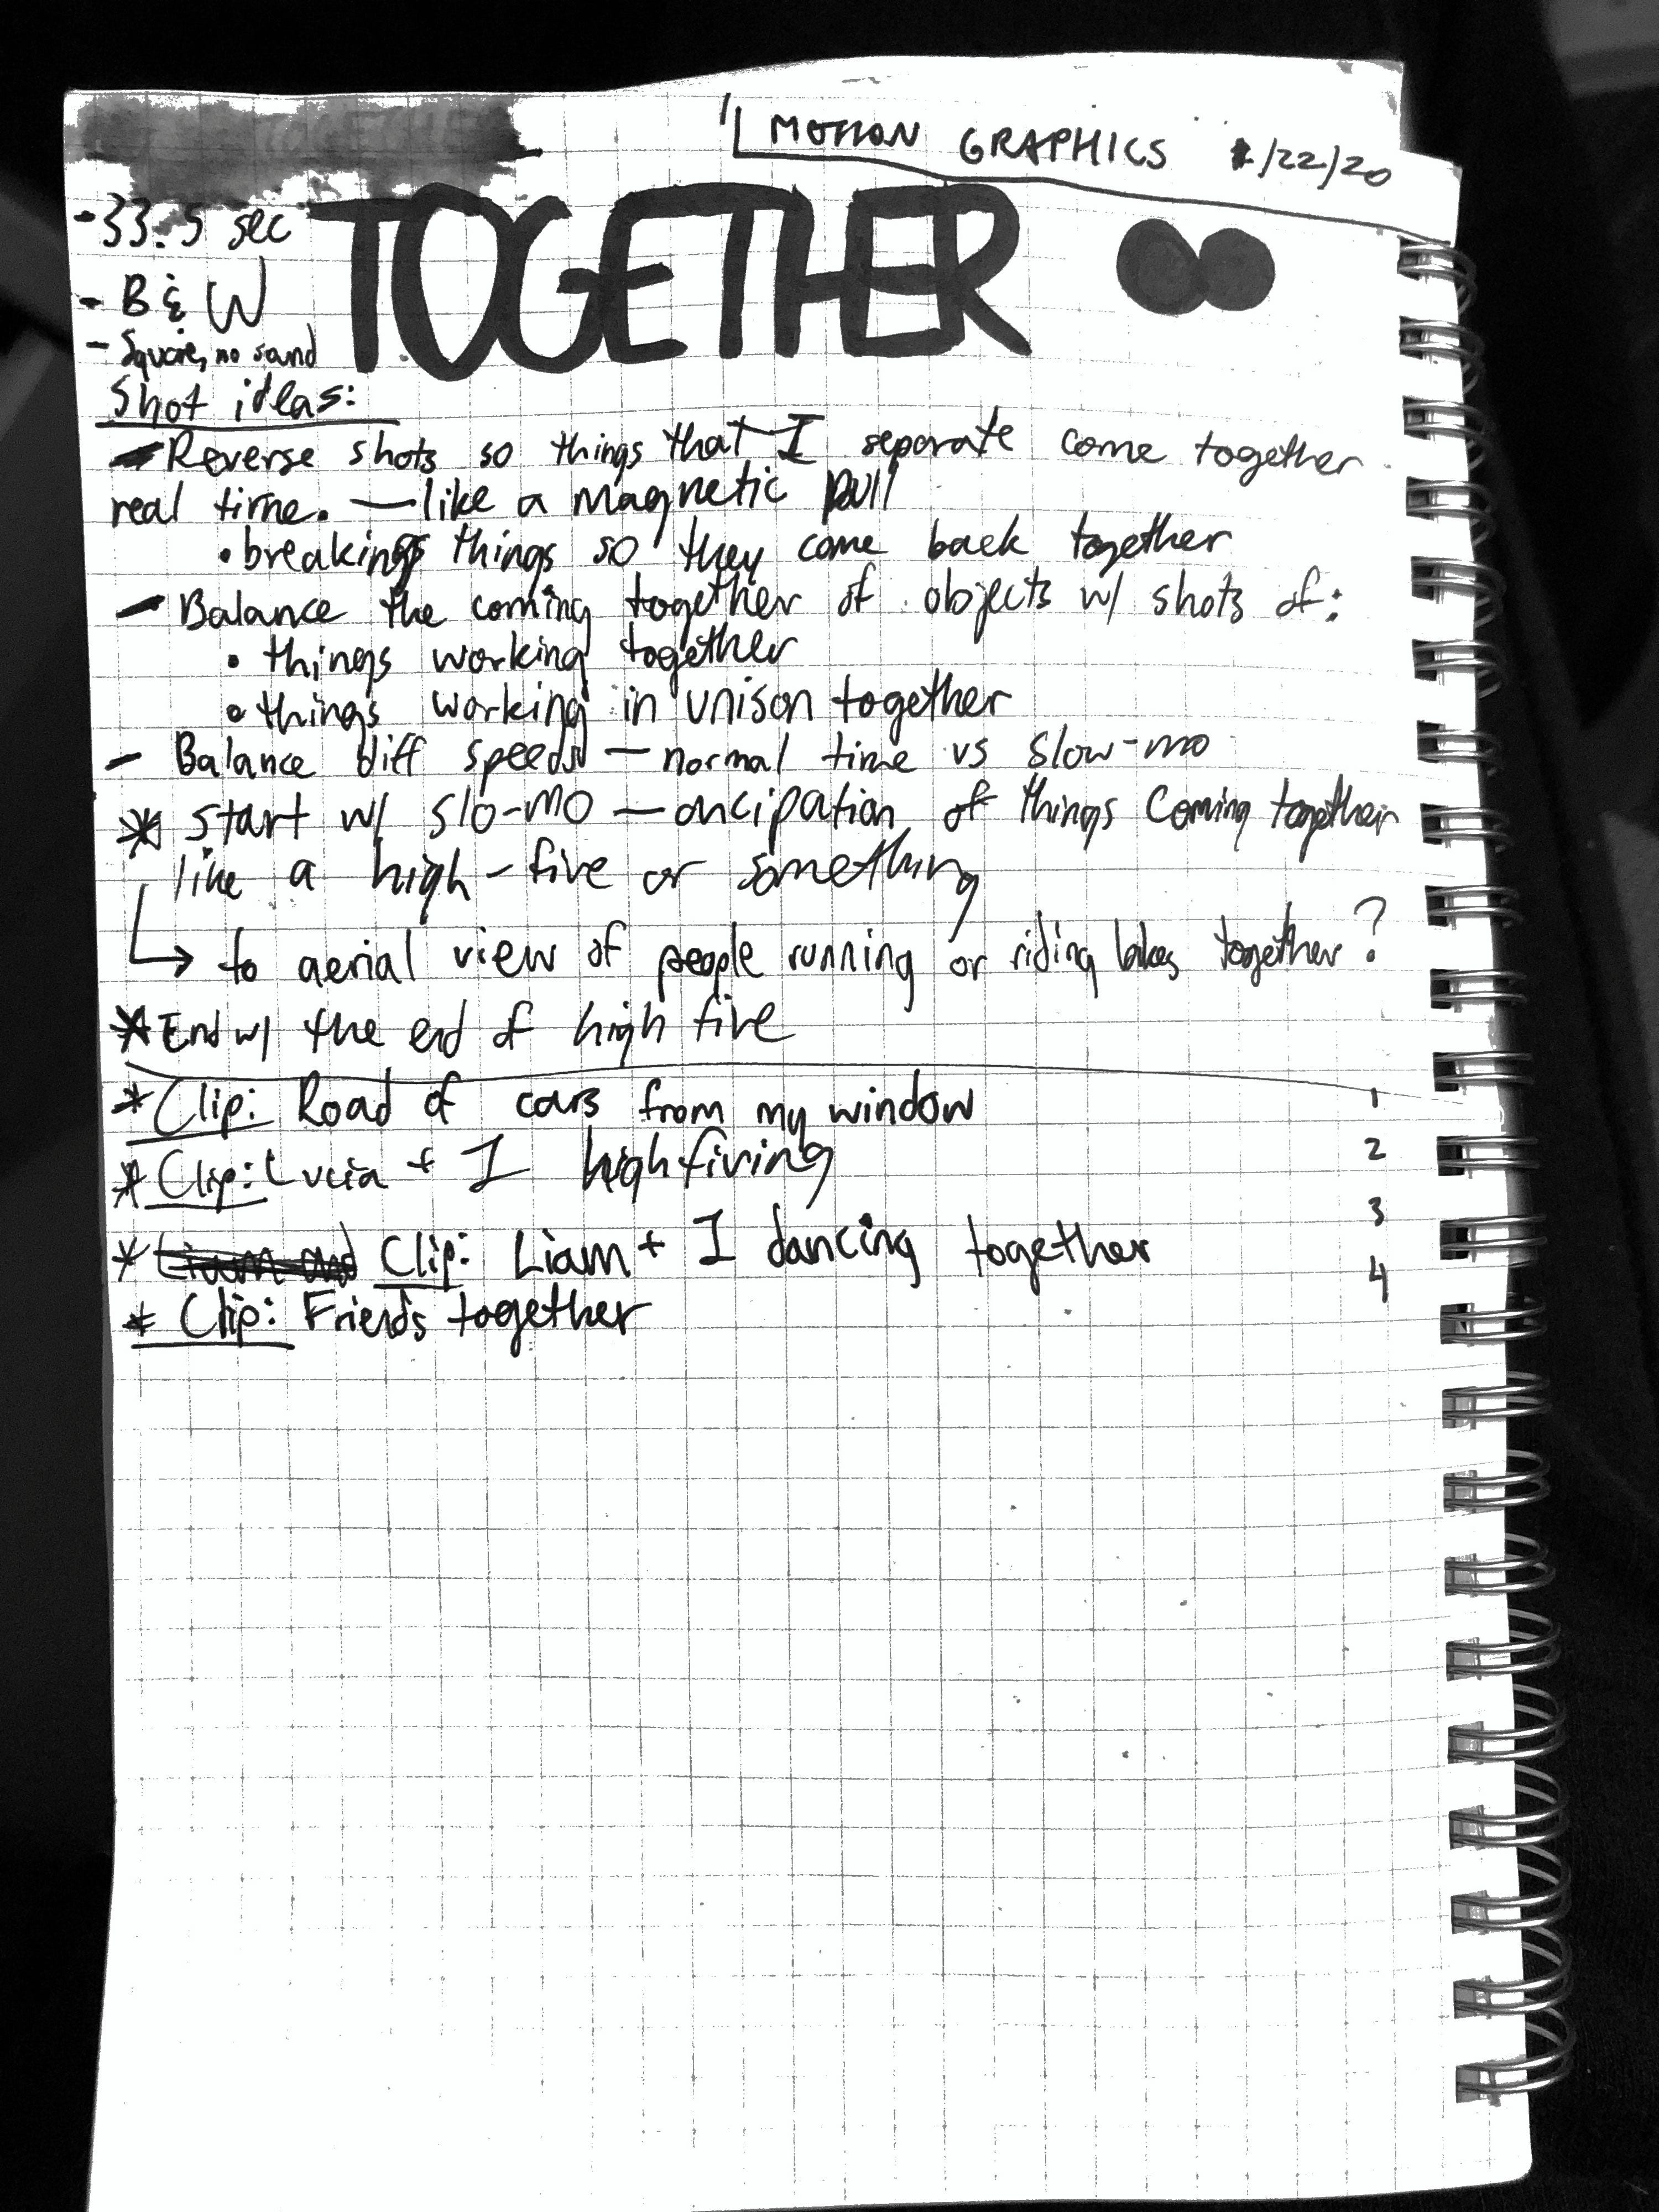 MOTION GRAPHICS 1/22/20
TOGETHER
- 33.5 sec
- B & W
- Square, no sound
Shot ideas:
- Reverse shots so things that I separate come together
real time. — like a magnetic pull
• breaking things so they come back together
- Balance the coming together of objects w/ shots of:
• things working together
• things working in unison together
- Balance diff speeds — normal time vs slow-mo
* start w/ slo-mo — ancipation of things coming together
like a high-five or something
↳ to aerial view of people running or riding bikes together?
* End w/ the end of high five
* Clip: Road of cars from my window 1
* Clip: Lucia + I highfiving 2
* Liam and Clip: Liam + I dancing together 3
* Clip: Friends together 4